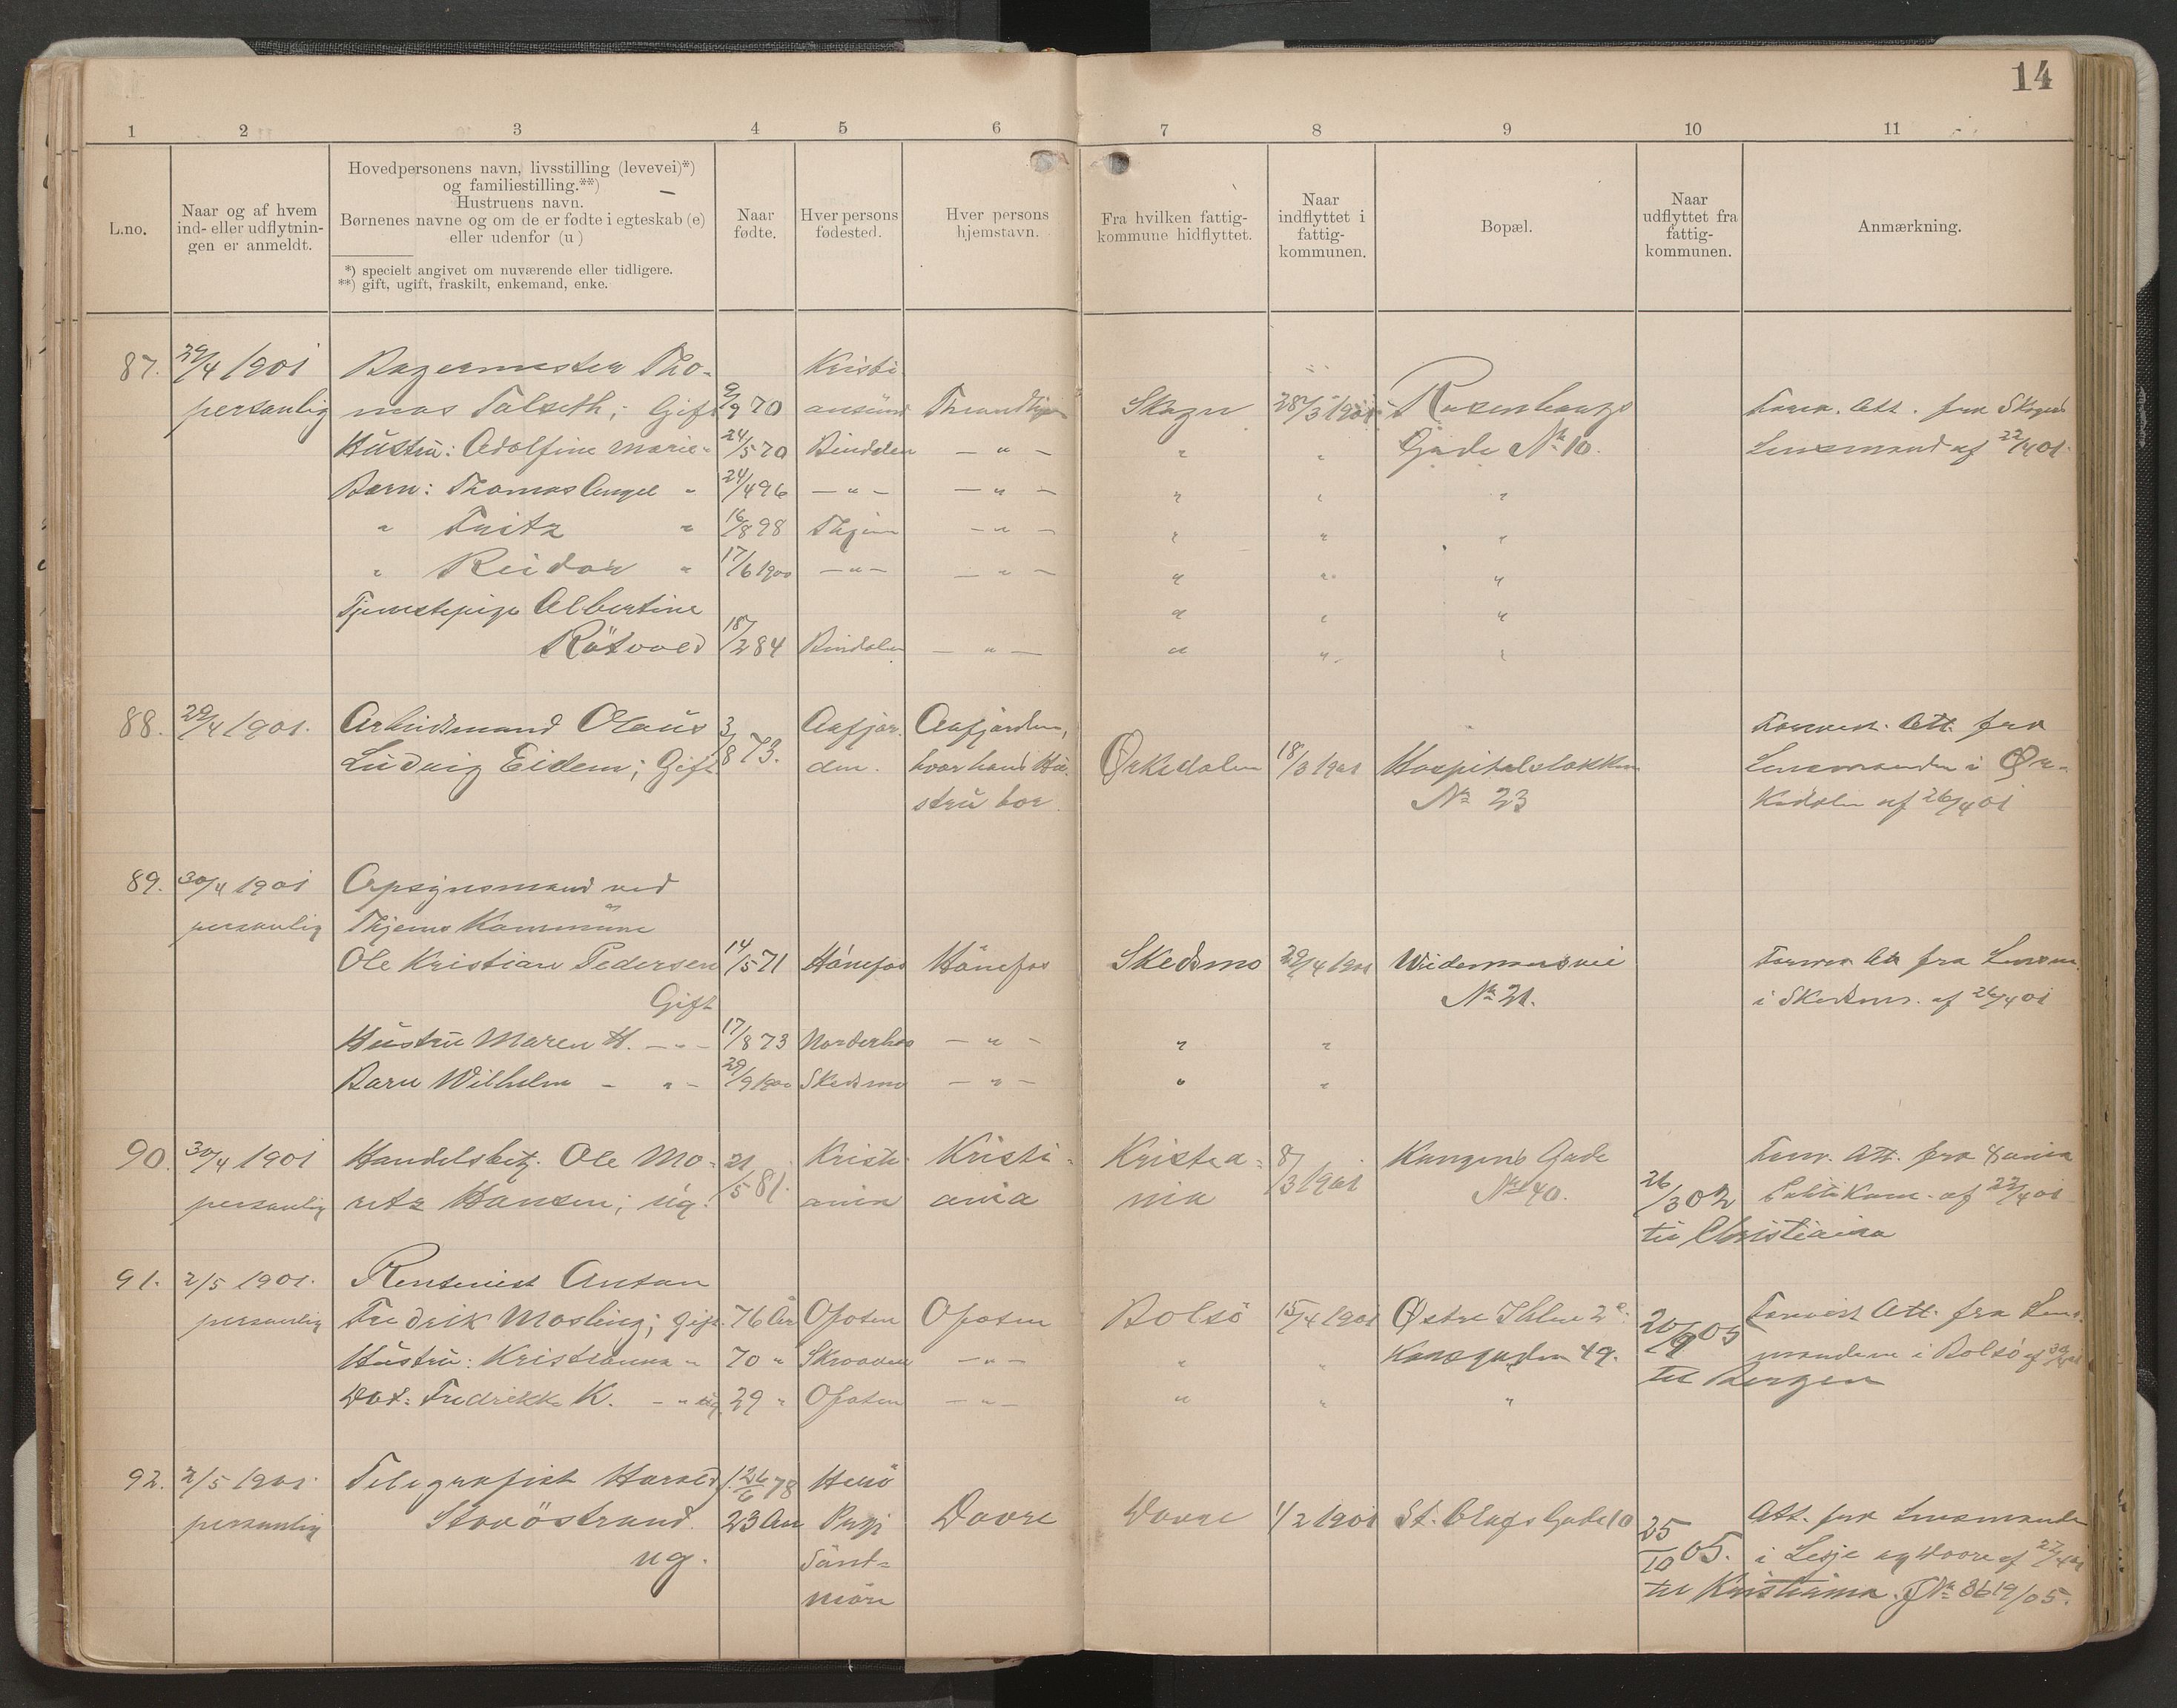 14
1 2 3 4 5 6 7 8 9 10 11
L.no.
Naar og af hvem
ind- eller udflytnin-
gen er anmeldt.
Hovedpersonens navn, livsstilling (levevei)*)
og familiestilling.**)
Hustruens navn.
Børnenes navne og om de er fødte i egteskab (e)
eller udenfor (u)
*) specielt angivet om nuværende eller tidligere.
**) gift, ugift, fraskilt, enkemand, enke.
Naar
fødte.
Hver persons
fødested.
Hver persons
hjemstavn.
Fra hvilken fattig-
kommune hidflyttet.
Naar
indflyttet i
fattig-
kommunen.
Bopæl.
Naar
udflyttet fra
fattig-
kommunen.
Anmærkning.
87. 29/4 1901 Bagermester Tho- Kristi
personlig mas Talseth; Gift 9/9 70 ansund Trondhjem Skogn 28/3 1901 Rosenborgs Forev. Att. fra Skogns
Hustru: Adolfine Marie " 24/5 70 Bindalen — " — " " Gade No 10. Lensmand af 22/4 01.
Barn: Thomas Angel " 24/4 96 — " — — " — " " "
" Fritz " 16/8 98 Thjem — " — " " "
" Reidar " 17/6 1900 — " — — " — " " "
Tjenestepige Albertine " " "
Råtvold 18/2 84 Bindalen — " — " " "
88. 29/4 1901. Arbeidsmand Olaus 3/8 73. Aafjor- Aafjorden, Forevist. Att. fra
Ludvig Eidem; Gift den. hvor hans Hu- Ørkedalen 18/3 1901 Hospitalsløkken Lensmanden i Ør-
stru bor. No 23 kedalen af 26/4 01
89. 30/4 1901 Opsynsmand ved
personlig Thjems Kommune
Ole Kristian Pedersen 14/5 71 Hönefos Hönefos Skedsmo 29/4 1901 Widemansvei Forev. Att. fra Lensm.
Gift No 21. i Skedsmo. af 26/4 01
Hustru Maren H. — " — 17/8 73 Norderhov — " — " "
Barn Wilhelm — " — 29/9 1900 Skedsmo — " — " "
90. 30/4 1901 Handelsbetj. Ole Mo- 21/5 81. Kristi- Kristi- Kristia- 8/3 1901 Kongens Gade Forev. Att. fra Xania
personlig ritz Hansen; ug. ania ania nia No 40. 26/3 02 Politikam. af 22/4 01
til Christiania
91. 2/5 1901. Rentenist Anton
personlig Fredrik Mosling; gift. 76 År Ofoten Ofoten Bolsö 15/4 1901 Østre Ihlen 2 20/9 05 Forevist Att. fra Lens-
Hustru: Kristianna " 70 " Skroaven — " — " " 49. manden i Bolsö af 30/4 01
til Bergen
Dat: Fredrikke K. — " ug. 29 " Ofoten — " — " " "
92. 2/5 1901. Telegrafist Harald f. 26/6 78 Herö
personlig Stavöstrand. 23 Aar Prgj. Dovre Dovre 1/2 1901 St. Olafs Gade 10 25/10 05. Att. fra Lensmanden
ug. Sönd- i Lesje og Dovre af 27/4 01
möre til Kristiania. J No 3619/05.